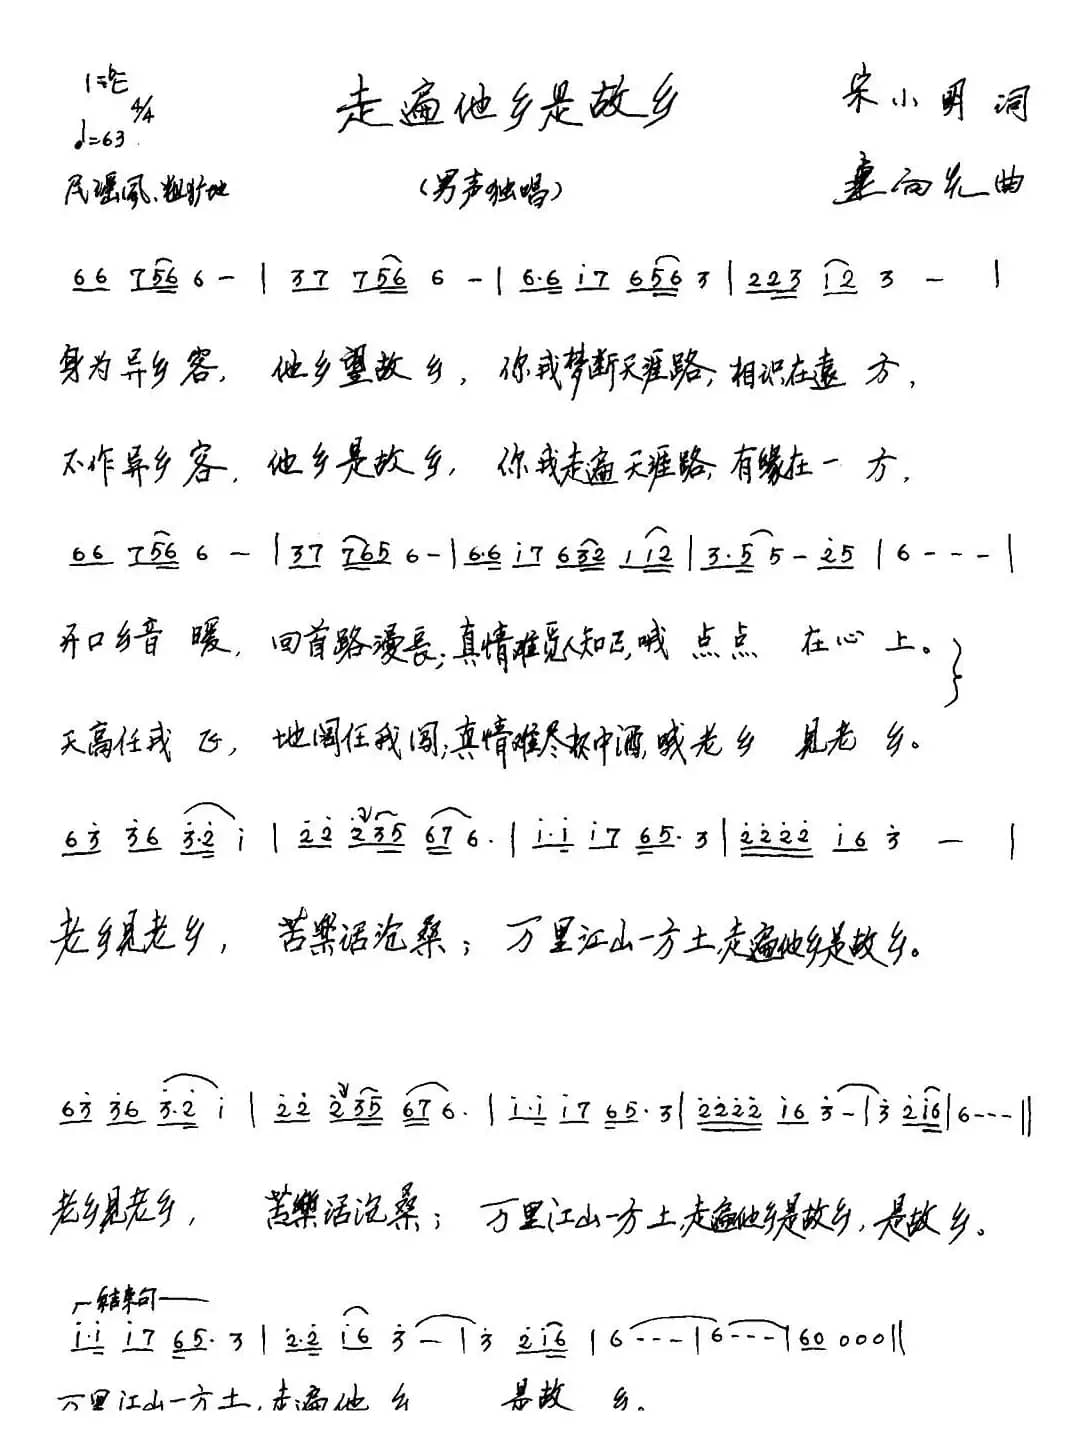 1=♭E 4/4
♩=63
走遍他乡是故乡
宋小明 词
民谣风、粗犷地
(男声独唱)
向允曲
66 756 6 - | 37 756 6 - | 6·6 i7 656 3 | 223 i2 3 - |
身为异乡客, 他乡望故乡, 你我梦断天涯路, 相识在遠方,
不作异乡客, 他乡是故乡, 你我走遍天涯路, 有缘在一方,
66 756 6 - | 37 7765 6 - | 6·6 i7 632 1 i2 | 3·5 5 - 25 | 6 - - - |
开口乡音暖, 回首路漫長; 真情难觅人知己, 哦 点点在心上。
天高任我飞, 地阔任我闯; 真情难尽杯中酒, 哦 老乡見老乡。
63 36 3·2 i | 22 235 67 6· | i·i i7 65· 3 | 2222 i6 3 - |
老乡見老乡, 苦樂话沧桑; 万里江山一方土, 走遍他乡是故乡。
63 36 3·2 i | 22 235 67 6· | i·i i7 65· 3 | 2222 i6 3 - | 3 2i6 | 6 - - - ||
老乡見老乡, 苦樂话沧桑; 万里江山一方土, 走遍他乡是故乡, 是故乡。
结束句
i·i i7 65· 3 | 2·2 i6 3 - | 3 2i6 | 6 - - - | 6 - - - | 60 000 ||
万里江山一方土, 走遍他乡 是故乡。